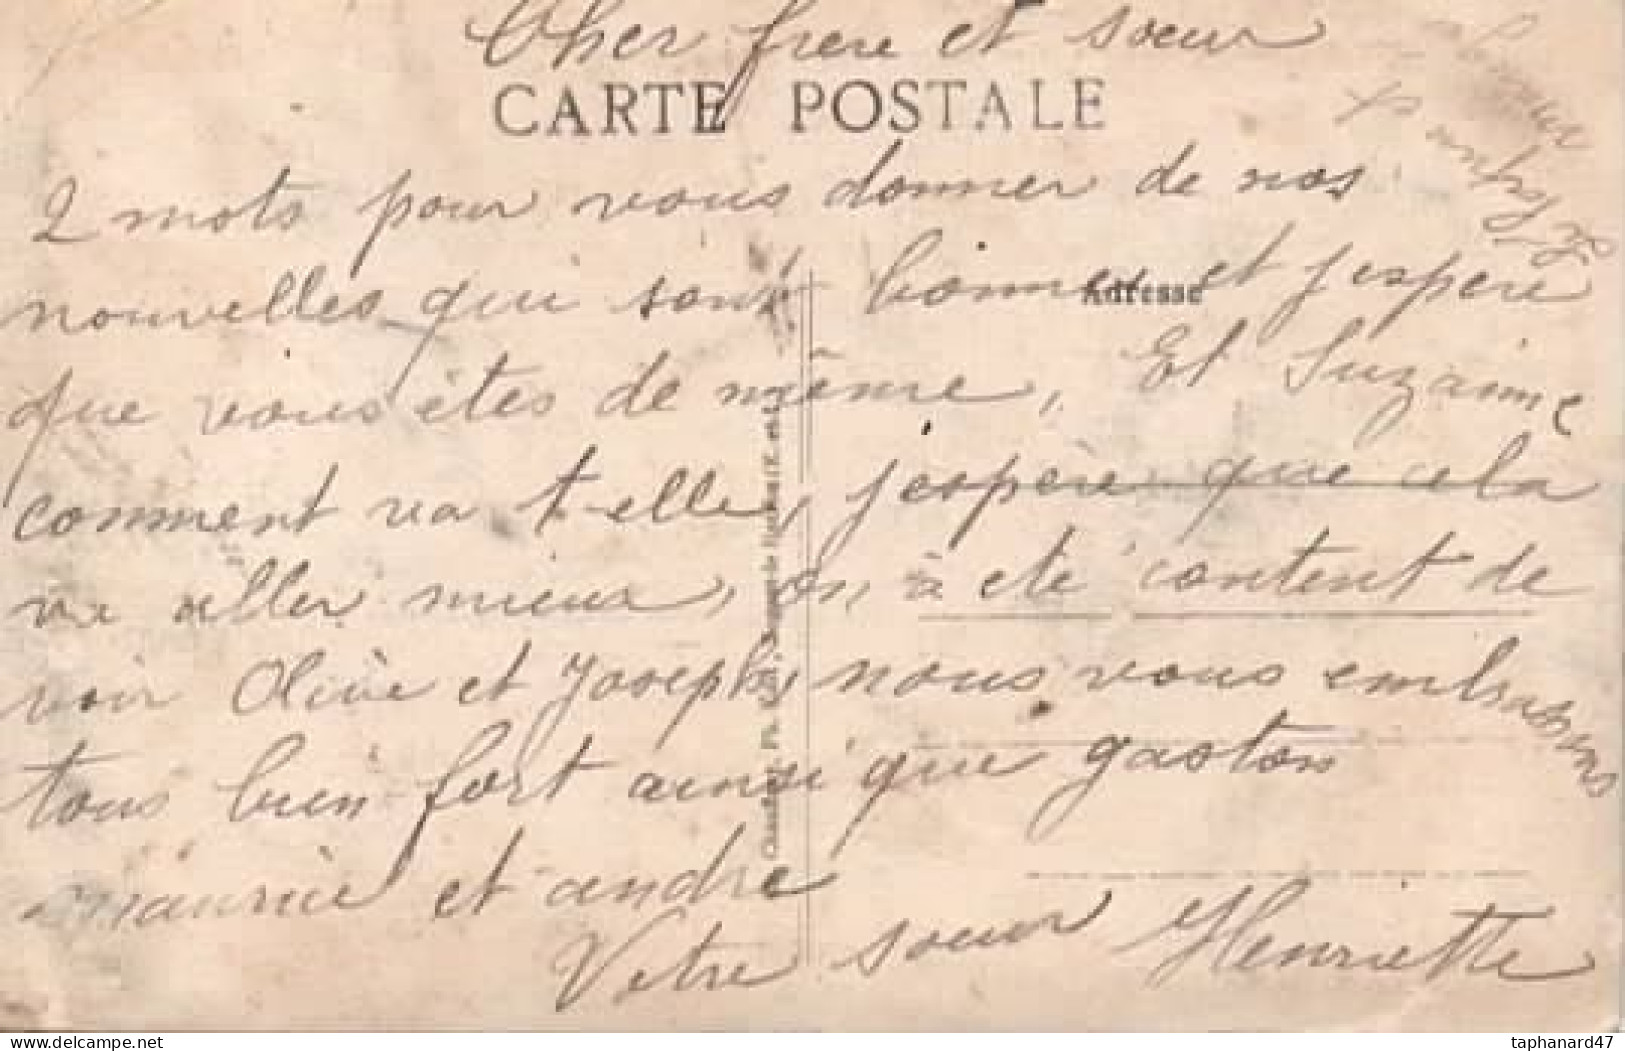 Cher frere et sœur
CARTE POSTALE
2 mots pour vous donner de nos
nouvelles qui sont bonne et j espere
Adresse
que vous êtes de même, Et Suzanne
comment va t-elle, j espère que cela
va aller mieux, on à eté content de
voir Olive et Joseph, nous vous embrassons
tous bien fort ainsi que gaston
maurice et andre
Votre sœur Henriette
taphanard47